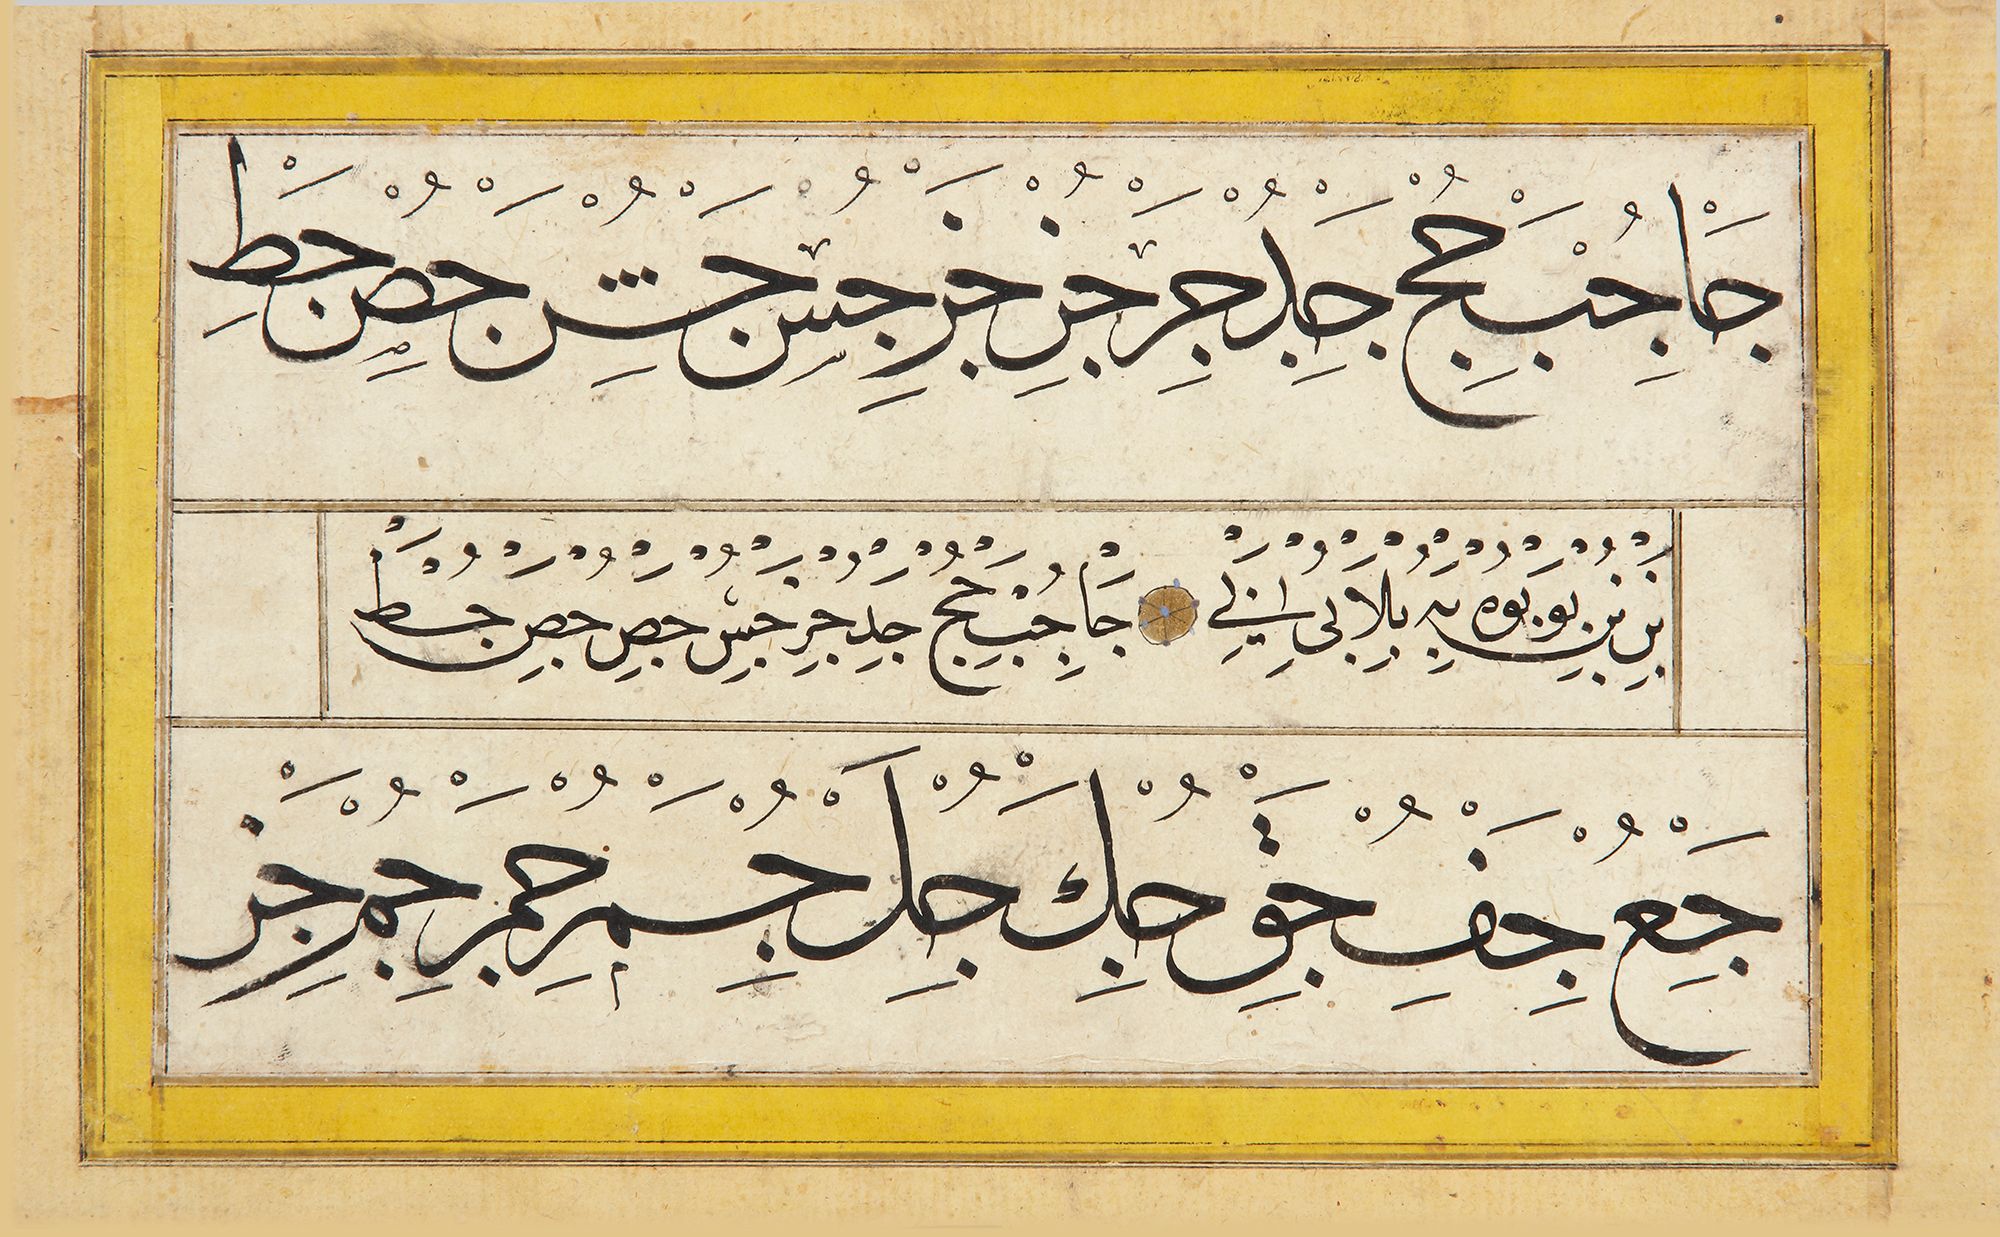 جَا جُبِ جَجِ جُدِ جَرِ جُزِ جَزِ جُسِ جَشِ جُصِ جَطِ
بن بن بو بوه به بلا بى جا جب جج جد جز جس جص جص جط
جَعِ جُفِ جَقِ جُكِ جَلِ جُمِ جَمِ جُمِ جَنِ